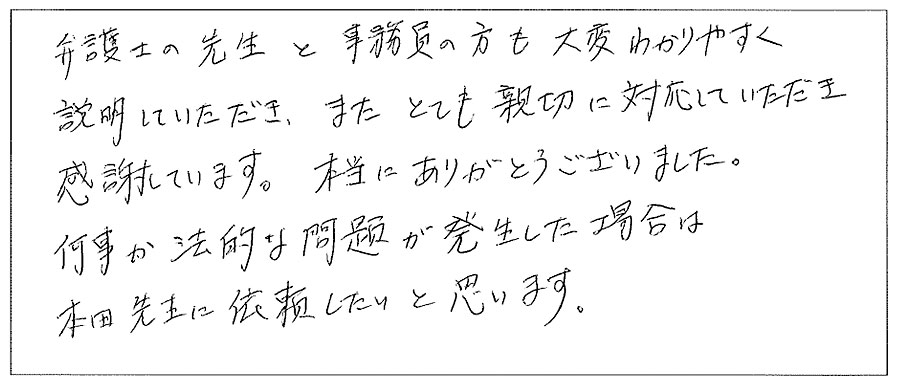 弁護士の先生と事務員の方も大変わかりやすく
説明していただき、またとても親切に対応していただき
感謝しています。本当にありがとうございました。
何事か法的な問題が発生した場合は
本田先生に依頼したいと思います。